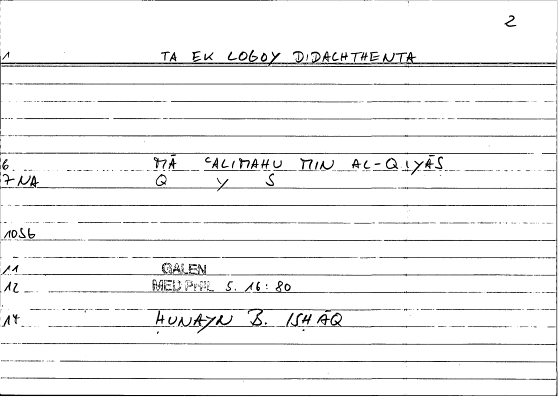 2
1 TA EK LOGOY DIDACHTHENTA
6 MĀ ʿALIMAHU MIN AL-QIYĀS
7 NA Q Y S
10 S6
11 GALEN
12 MED PHIL 5. 16: 80
14 ḤUNAYN B. ISḤĀQ